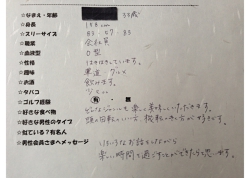 ☆なまえ・年齢 33歳
☆身長 158cm
☆スリーサイズ 83・57・85
☆職業 会社員
☆血液型 O型
☆性格 はきはきしています。
☆趣味 華道
☆お酒 飲みます。
☆タバコ
☆ゴルフ経験 有・無
☆好きな食べ物 どんなジャンルも楽しく美味しくいただきます。
☆好きな男性のタイプ 頭の回転のいい方、
☆似ている？有名人
☆男性会員さまへメッセージ いろいろなお話をしながら
楽しい時間を過ごすことができたらと思います。